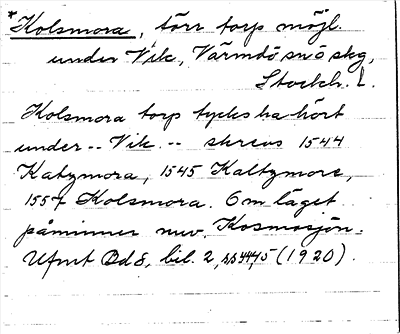 *Kolsmora, förr torp möjl.
under Vik, Värmdö snö skg,
Stockh. L.
Kolsmora torp tycks ha hört
under -- Vik -- skrevs 1544
Katzmora, 1545 Kaltzmore,
1557 Kolsmora. Om läget
påminner nuv. Kosmosjön.
Ufmt Bd 8, bil. 2, 45 (1920).